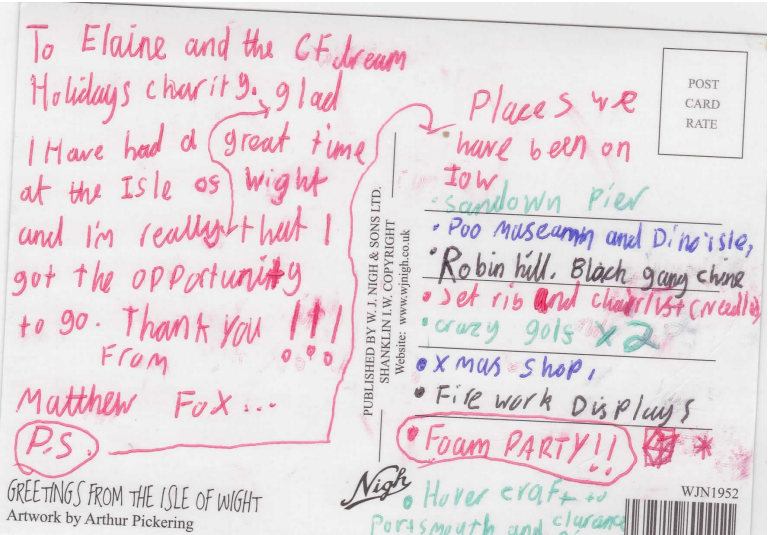 To Elaine and the CF dream
Holidays charity. glad
I Have had a great time
at the Isle os wight
and I'm really that I
got the opportunity
to go. Thank you !!!
From
Matthew Fox...
P.S.
GREETINGS FROM THE ISLE OF WIGHT
Artwork by Arthur Pickering
PUBLISHED BY W. J. NIGH & SONS LTD.
SHANKLIN I.W. COPYRIGHT
Website: www.wjnigh.co.uk
Nigh
POST
CARD
RATE
Places we
have been on
IOW
• Sandown Pier
• Poo Museamm and Dino isle,
• Robin hill. Black gang chine
• Jet rib and
• crazy gols x2
• Xmas Shop,
• Fire work Displays
• Foam PARTY!!
• Hover craft to
Portsmouth and clarance
WJN1952